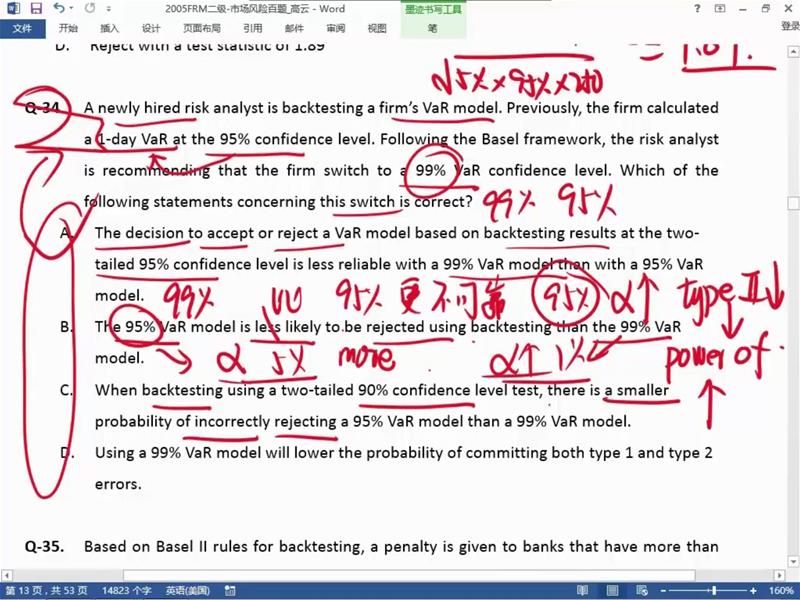 2005FRM二级-市场风险百题_高云 - Word
墨迹书写工具
登录
文件 开始 插入 设计 页面布局 引用 邮件 审阅 视图 笔
D. Reject with a test statistic of 1.89
√5%×95%×250
= 1.89.
Q-34. A newly hired risk analyst is backtesting a firm's VaR model. Previously, the firm calculated
a 1-day VaR at the 95% confidence level. Following the Basel framework, the risk analyst
is recommending that the firm switch to a 99% VaR confidence level. Which of the
following statements concerning this switch is correct?
99% 95%
A. The decision to accept or reject a VaR model based on backtesting results at the two-
tailed 95% confidence level is less reliable with a 99% VaR model than with a 95% VaR
model.
99% VV 95% 更不可靠 95% α↑ type II↓
B. The 95% VaR model is less likely to be rejected using backtesting than the 99% VaR
model.
→ α 5% more α↑ 1% power of
C. When backtesting using a two-tailed 90% confidence level test, there is a smaller
probability of incorrectly rejecting a 95% VaR model than a 99% VaR model.
D. Using a 99% VaR model will lower the probability of committing both type 1 and type 2
errors.
Q-35. Based on Basel II rules for backtesting, a penalty is given to banks that have more than
第 13 页，共 53 页 14823 个字 英语(美国) 160%